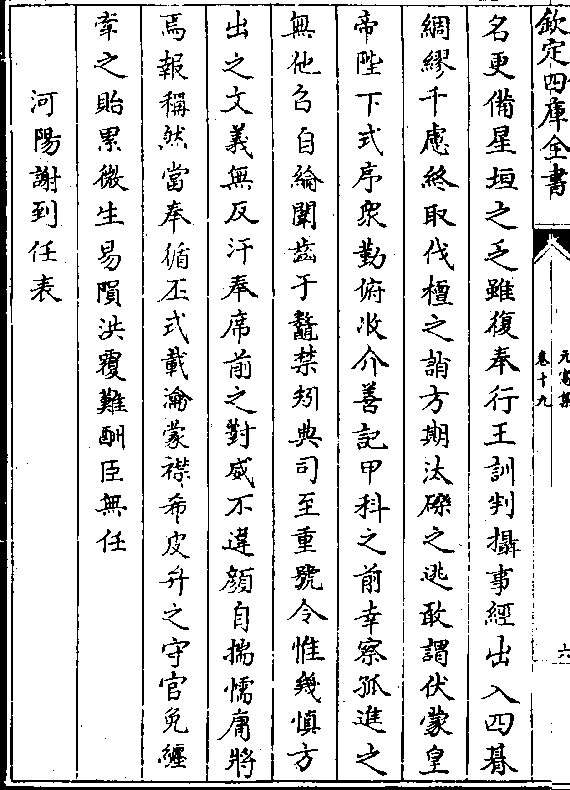 欽定四庫全書
元憲集
卷十九
六
名更備星垣之乏雖復奉行王訓判攝事經出入四朞
綢繆千慮終取伐檀之誚方期汰礫之逃敢謂伏蒙皇
帝陛下式序衆勤俯收介善記甲科之前幸察孤進之
無他召自綸闈齒于鼇禁矧典司至重號令惟幾慎方
出之文義無反汗奉席前之對威不違顔自揣懦庸將
焉報稱然當奉循丕式載瀹蒙襟希皮弁之守官免纒
牽之貽累微生易隕洪覆難酬臣無任
河陽謝到任表